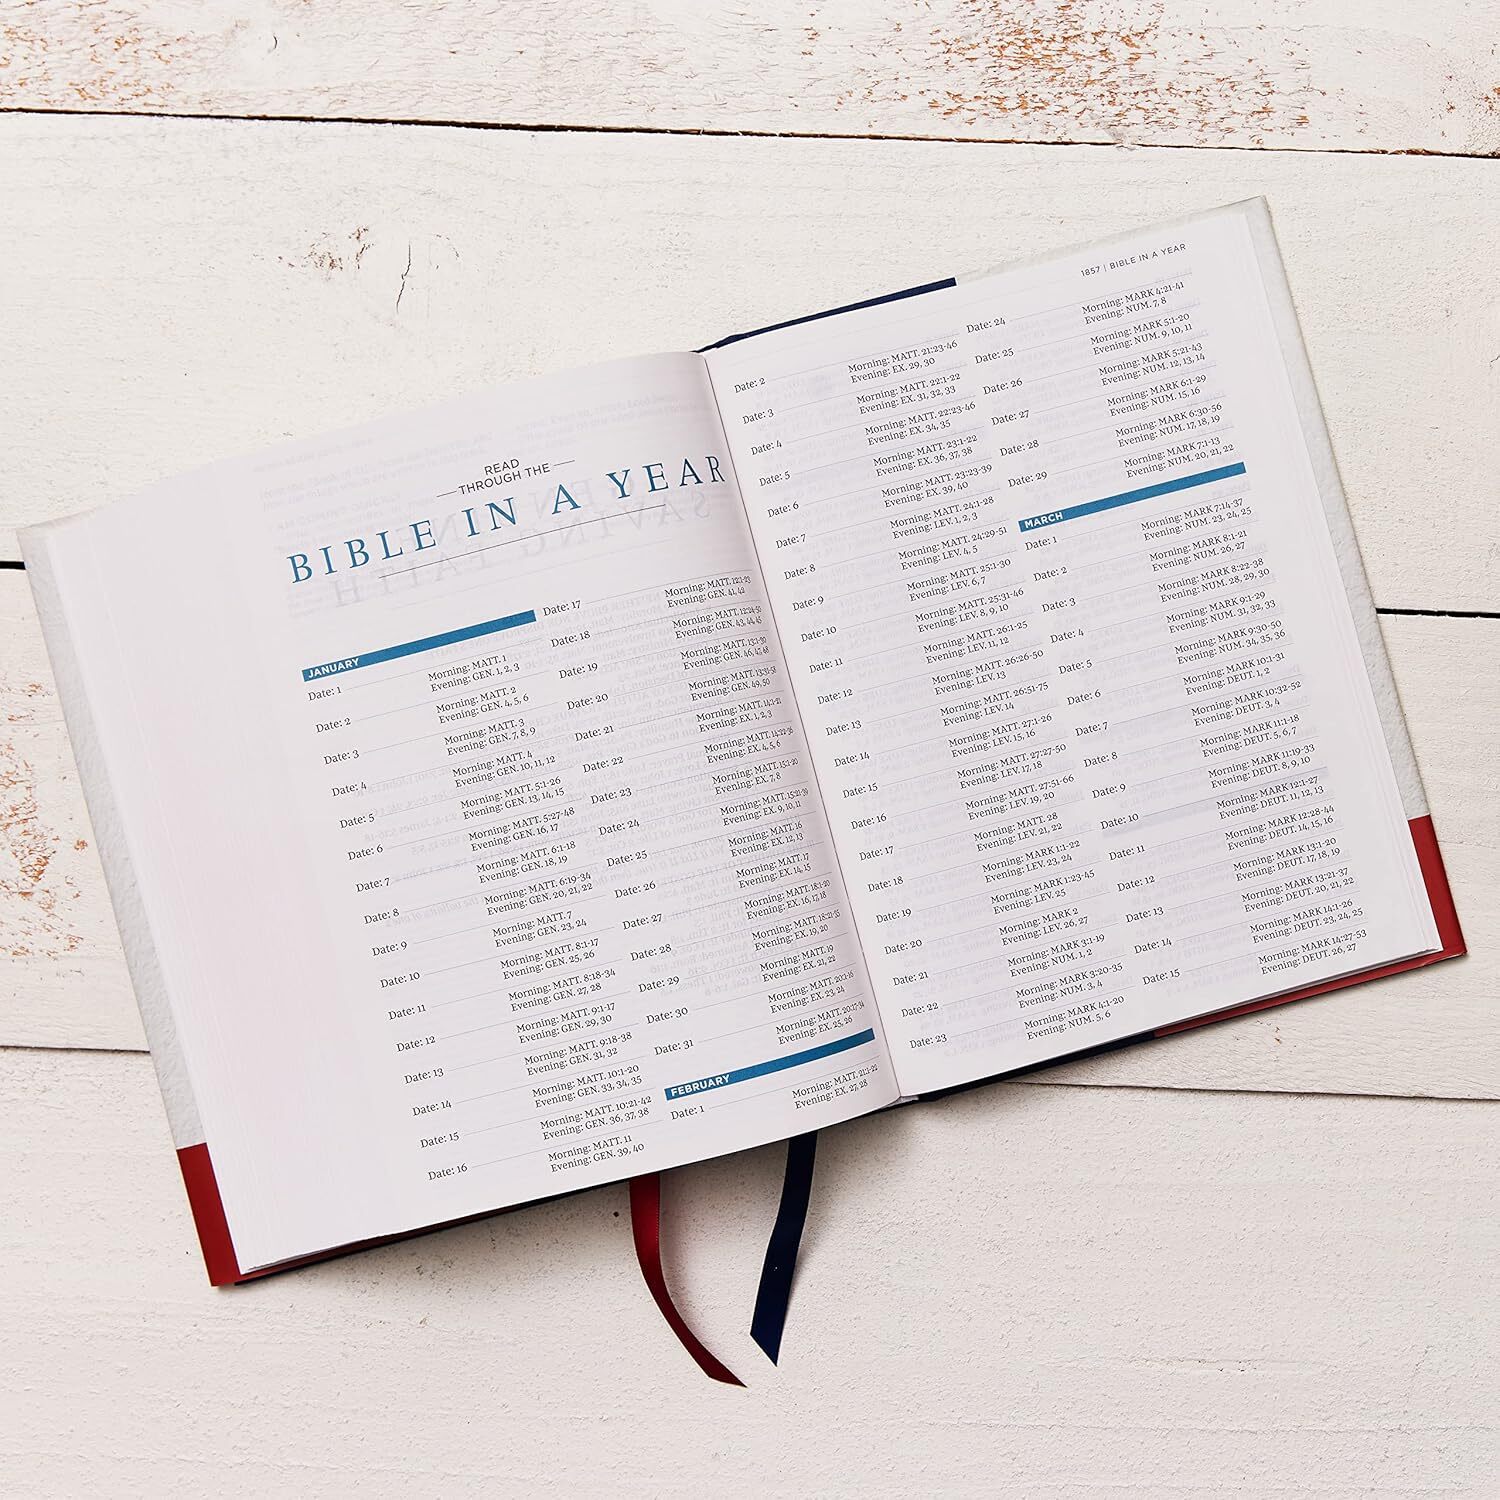 READ
THROUGH THE
BIBLE IN A YEAR
JANUARY
Date: 1 Morning: MATT. 1
Evening: GEN. 1, 2, 3
Date: 2 Morning: MATT. 2
Evening: GEN. 4, 5, 6
Date: 3 Morning: MATT. 3
Evening: GEN. 7, 8, 9
Date: 4 Morning: MATT. 4
Evening: GEN. 10, 11, 12
Date: 5 Morning: MATT. 5:1-26
Evening: GEN. 13, 14, 15
Date: 6 Morning: MATT. 5:27-48
Evening: GEN. 16, 17
Date: 7 Morning: MATT. 6:1-18
Evening: GEN. 18, 19
Date: 8 Morning: MATT. 6:19-34
Evening: GEN. 20, 21, 22
Date: 9 Morning: MATT. 7
Evening: GEN. 23, 24
Date: 10 Morning: MATT. 8:1-17
Evening: GEN. 25, 26
Date: 11 Morning: MATT. 8:18-34
Evening: GEN. 27, 28
Date: 12 Morning: MATT. 9:1-17
Evening: GEN. 29, 30
Date: 13 Morning: MATT. 9:18-38
Evening: GEN. 31, 32
Date: 14 Morning: MATT. 10:1-20
Evening: GEN. 33, 34, 35
Date: 15 Morning: MATT. 10:21-42
Evening: GEN. 36, 37, 38
Date: 16 Morning: MATT. 11
Evening: GEN. 39, 40
Date: 17 Morning: MATT. 12:1-23
Evening: GEN. 41, 42
Date: 18 Morning: MATT. 12:24-50
Evening: GEN. 43, 44, 45
Date: 19 Morning: MATT. 13:1-30
Evening: GEN. 46, 47, 48
Date: 20 Morning: MATT. 13:31-58
Evening: GEN. 49, 50
Date: 21 Morning: MATT. 14:1-21
Evening: EX. 1, 2, 3
Date: 22 Morning: MATT. 14:22-36
Evening: EX. 4, 5, 6
Date: 23 Morning: MATT. 15:1-20
Evening: EX. 7, 8
Date: 24 Morning: MATT. 15:21-39
Evening: EX. 9, 10, 11
Date: 25 Morning: MATT. 16
Evening: EX. 12, 13
Date: 26 Morning: MATT. 17
Evening: EX. 14, 15
Date: 27 Morning: MATT. 18:1-20
Evening: EX. 16, 17, 18
Date: 28 Morning: MATT. 18:21-35
Evening: EX. 19, 20
Date: 29 Morning: MATT. 19
Evening: EX. 21, 22
Date: 30 Morning: MATT. 20:1-16
Evening: EX. 23, 24
Date: 31 Morning: MATT. 20:17-34
Evening: EX. 25, 26
FEBRUARY
Date: 1 Morning: MATT. 21:1-22
Evening: EX. 27, 28
1857 | BIBLE IN A YEAR
Date: 2 Morning: MATT. 21:23-46
Evening: EX. 29, 30
Date: 3 Morning: MATT. 22:1-22
Evening: EX. 31, 32, 33
Date: 4 Morning: MATT. 22:23-46
Evening: EX. 34, 35
Date: 5 Morning: MATT. 23:1-22
Evening: EX. 36, 37, 38
Date: 6 Morning: MATT. 23:23-39
Evening: EX. 39, 40
Date: 7 Morning: MATT. 24:1-28
Evening: LEV. 1, 2, 3
Date: 8 Morning: MATT. 24:29-51
Evening: LEV. 4, 5
Date: 9 Morning: MATT. 25:1-30
Evening: LEV. 6, 7
Date: 10 Morning: MATT. 25:31-46
Evening: LEV. 8, 9, 10
Date: 11 Morning: MATT. 26:1-25
Evening: LEV. 11, 12
Date: 12 Morning: MATT. 26:26-50
Evening: LEV. 13
Date: 13 Morning: MATT. 26:51-75
Evening: LEV. 14
Date: 14 Morning: MATT. 27:1-26
Evening: LEV. 15, 16
Date: 15 Morning: MATT. 27:27-50
Evening: LEV. 17, 18
Date: 16 Morning: MATT. 27:51-66
Evening: LEV. 19, 20
Date: 17 Morning: MATT. 28
Evening: LEV. 21, 22
Date: 18 Morning: MARK 1:1-22
Evening: LEV. 23, 24
Date: 19 Morning: MARK 1:23-45
Evening: LEV. 25
Date: 20 Morning: MARK 2
Evening: LEV. 26, 27
Date: 21 Morning: MARK 3:1-19
Evening: NUM. 1, 2
Date: 22 Morning: MARK 3:20-35
Evening: NUM. 3, 4
Date: 23 Morning: MARK 4:1-20
Evening: NUM. 5, 6
Date: 24 Morning: MARK 4:21-41
Evening: NUM. 7, 8
Date: 25 Morning: MARK 5:1-20
Evening: NUM. 9, 10, 11
Date: 26 Morning: MARK 5:21-43
Evening: NUM. 12, 13, 14
Date: 27 Morning: MARK 6:1-29
Evening: NUM. 15, 16
Date: 28 Morning: MARK 6:30-56
Evening: NUM. 17, 18, 19
Date: 29 Morning: MARK 7:1-13
Evening: NUM. 20, 21, 22
MARCH
Date: 1 Morning: MARK 7:14-37
Evening: NUM. 23, 24, 25
Date: 2 Morning: MARK 8:1-21
Evening: NUM. 26, 27
Date: 3 Morning: MARK 8:22-38
Evening: NUM. 28, 29, 30
Date: 4 Morning: MARK 9:1-29
Evening: NUM. 31, 32, 33
Date: 5 Morning: MARK 9:30-50
Evening: NUM. 34, 35, 36
Date: 6 Morning: MARK 10:1-31
Evening: DEUT. 1, 2
Date: 7 Morning: MARK 10:32-52
Evening: DEUT. 3, 4
Date: 8 Morning: MARK 11:1-18
Evening: DEUT. 5, 6, 7
Date: 9 Morning: MARK 11:19-33
Evening: DEUT. 8, 9, 10
Date: 10 Morning: MARK 12:1-27
Evening: DEUT. 11, 12, 13
Date: 11 Morning: MARK 12:28-44
Evening: DEUT. 14, 15, 16
Date: 12 Morning: MARK 13:1-20
Evening: DEUT. 17, 18, 19
Date: 13 Morning: MARK 13:21-37
Evening: DEUT. 20, 21, 22
Date: 14 Morning: MARK 14:1-26
Evening: DEUT. 23, 24, 25
Date: 15 Morning: MARK 14:27-53
Evening: DEUT. 26, 27